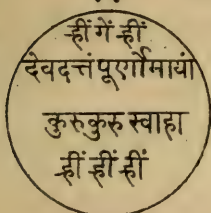 ह्रीं गें ह्रीं
देवदत्तं पूर्णोमायां
कुरु कुरु स्वाहा
ह्रीं ह्रीं ह्रीं